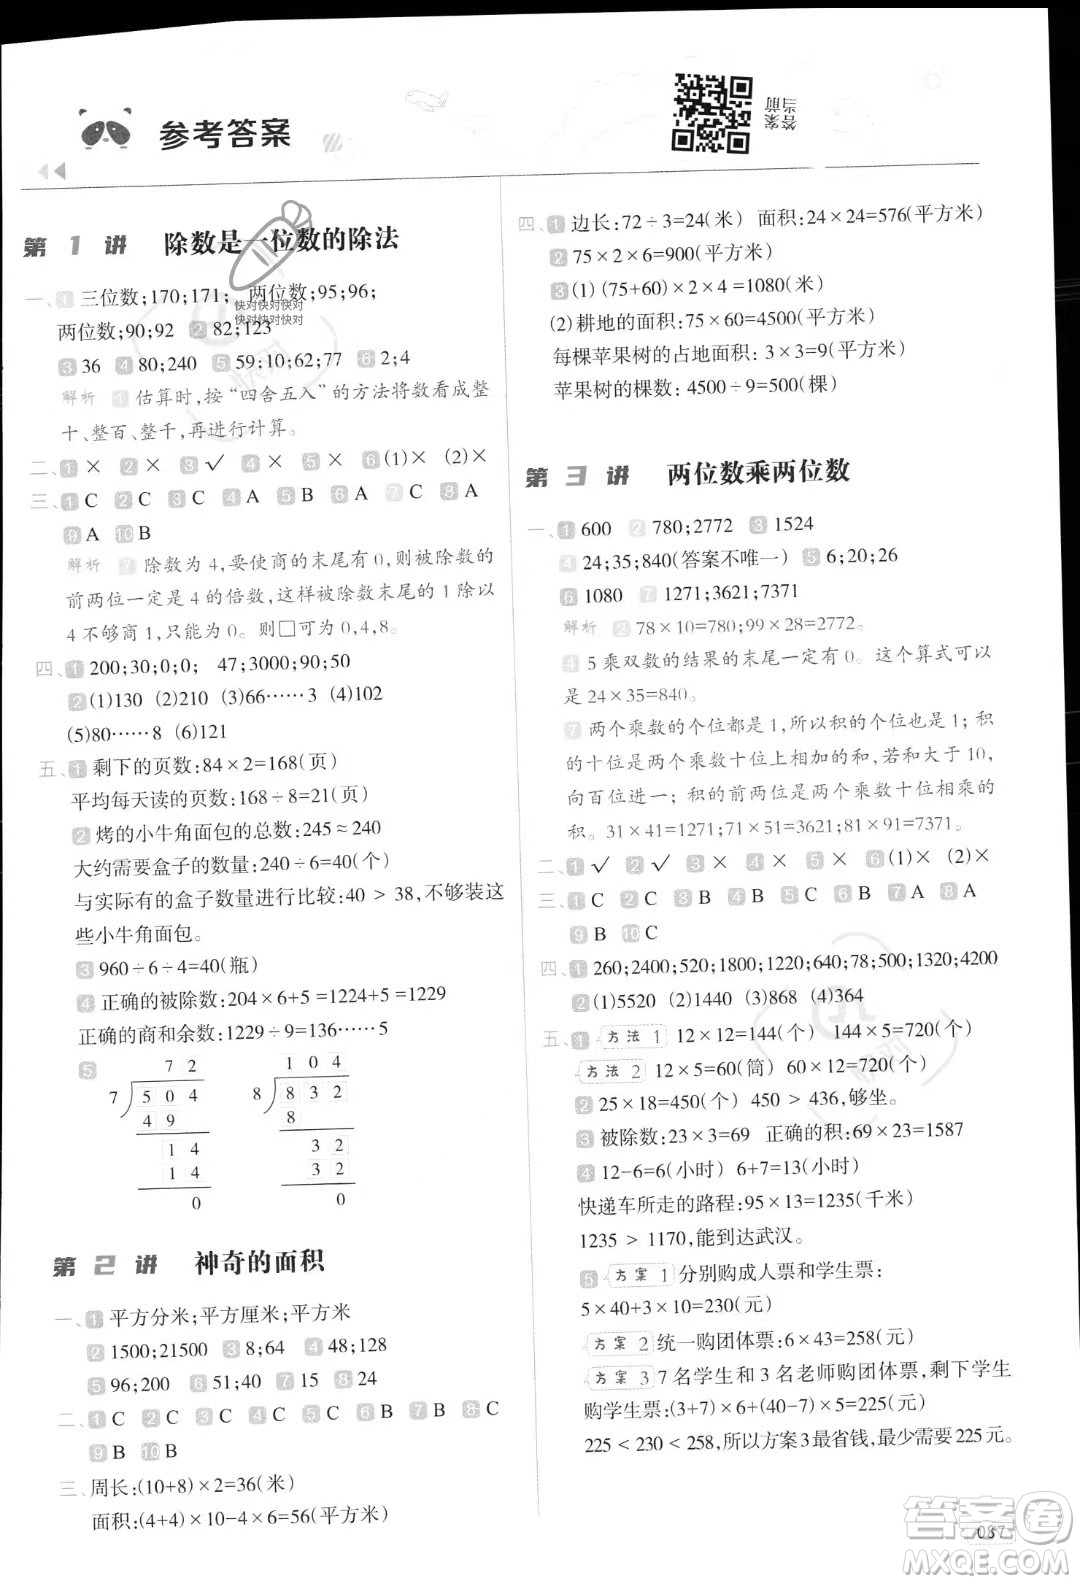 参考答案
答案当前
第1讲 除数是一位数的除法
一、1 三位数;170;171; 两位数;95;96;
两位数;90;92 2 82;123
3 36 4 80;240 5 59;10;62;77 6 2;4
解析 1 估算时,按“四舍五入”的方法将数看成整
十、整百、整千,再进行计算。
二、1 × 2 × 3 ✓ 4 × 5 × 6 (1)× (2)×
三、1 C 2 C 3 C 4 A 5 B 6 A 7 C 8 A
9 A 10 B
解析 7 除数为4,要使商的末尾有0,则被除数的
前两位一定是4的倍数,这样被除数末尾的4除以
4不够商1,只能为0。则□可为0,4,8。
四、1 200;30;0;0; 47;3000;90;50
2 (1)130 (2)210 (3)66……3 (4)102
(5)80……8 (6)121
五、1 剩下的页数:84×2=168(页)
平均每天读的页数:168÷8=21(页)
2 烤的小牛角面包的总数:245≈240
大约需要盒子的数量:240÷6=40(个)
与实际有的盒子数量进行比较:40 > 38,不够装这
些小牛角面包。
3 960÷6÷4=40(瓶)
4 正确的被除数:204×6+5=1224+5=1229
正确的商和余数:1229÷9=136……5
5 72 104
7 504 8 832
49 8
14 32
14 32
0 0
第2讲 神奇的面积
一、1 平方分米;平方厘米;平方米
2 1500;21500 3 8;64 4 48;128
5 96;200 6 51;40 7 15 8 24
二、1 C 2 C 3 C 4 C 5 C 6 B 7 B 8 C
9 B 10 B
三、周长:(10+8)×2=36(米)
面积:(4+4)×10-4×6=56(平方米)
四、1 边长:72÷3=24(米) 面积:24×24=576(平方米)
2 75×2×6=900(平方米)
3 (1) (75+60)×2×4=1080(米)
(2)耕地的面积:75×60=4500(平方米)
每棵苹果树的占地面积:3×3=9(平方米)
苹果树的棵数:4500÷9=500(棵)
第3讲 两位数乘两位数
一、1 600 2 780;2772 3 1524
4 24;35;840(答案不唯一) 5 6;20;26
6 1080 7 1271;3621;7371
解析 2 78×10=780;99×28=2772。
4 5乘双数的结果的末尾一定有0。这个算式可以
是24×35=840。
7 两个乘数的个位都是1,所以积的个位也是1;积
的十位是两个乘数十位上相加的和,若和大于10,
向百位进一;积的前两位是两个乘数十位相乘的
积。31×41=1271;71×51=3621;81×91=7371。
二、1 ✓ 2 ✓ 3 × 4 × 5 × 6 (1)× (2)×
三、1 C 2 C 3 C 4 B 5 C 6 B 7 A 8 A
9 B 10 C
四、1 260;2400;520;1800;1220;640;78;500;1320;4200
2 (1)5520 (2)1440 (3)868 (4)364
五、1 方法1 12×12=144(个) 144×5=720(个)
方法2 12×5=60(筒) 60×12=720(个)
2 25×18=450(个) 450 > 436,够坐。
3 被除数:23×3=69 正确的积:69×23=1587
4 12-6=6(小时) 6+7=13(小时)
快递车所走的路程:95×13=1235(千米)
1235 > 1170,能到达武汉。
5 方案1 分别购成人票和学生票:
5×40+3×10=230(元)
方案2 统一购团体票:6×43=258(元)
方案3 7名学生和3名老师购团体票,剩下学生
购学生票:(3+7)×6+(40-7)×5=225(元)
225 < 230 < 258,所以方案3最省钱,最少需要225元。
快对快对快对
快对快对快对
087
答案圈
MXQE.COM